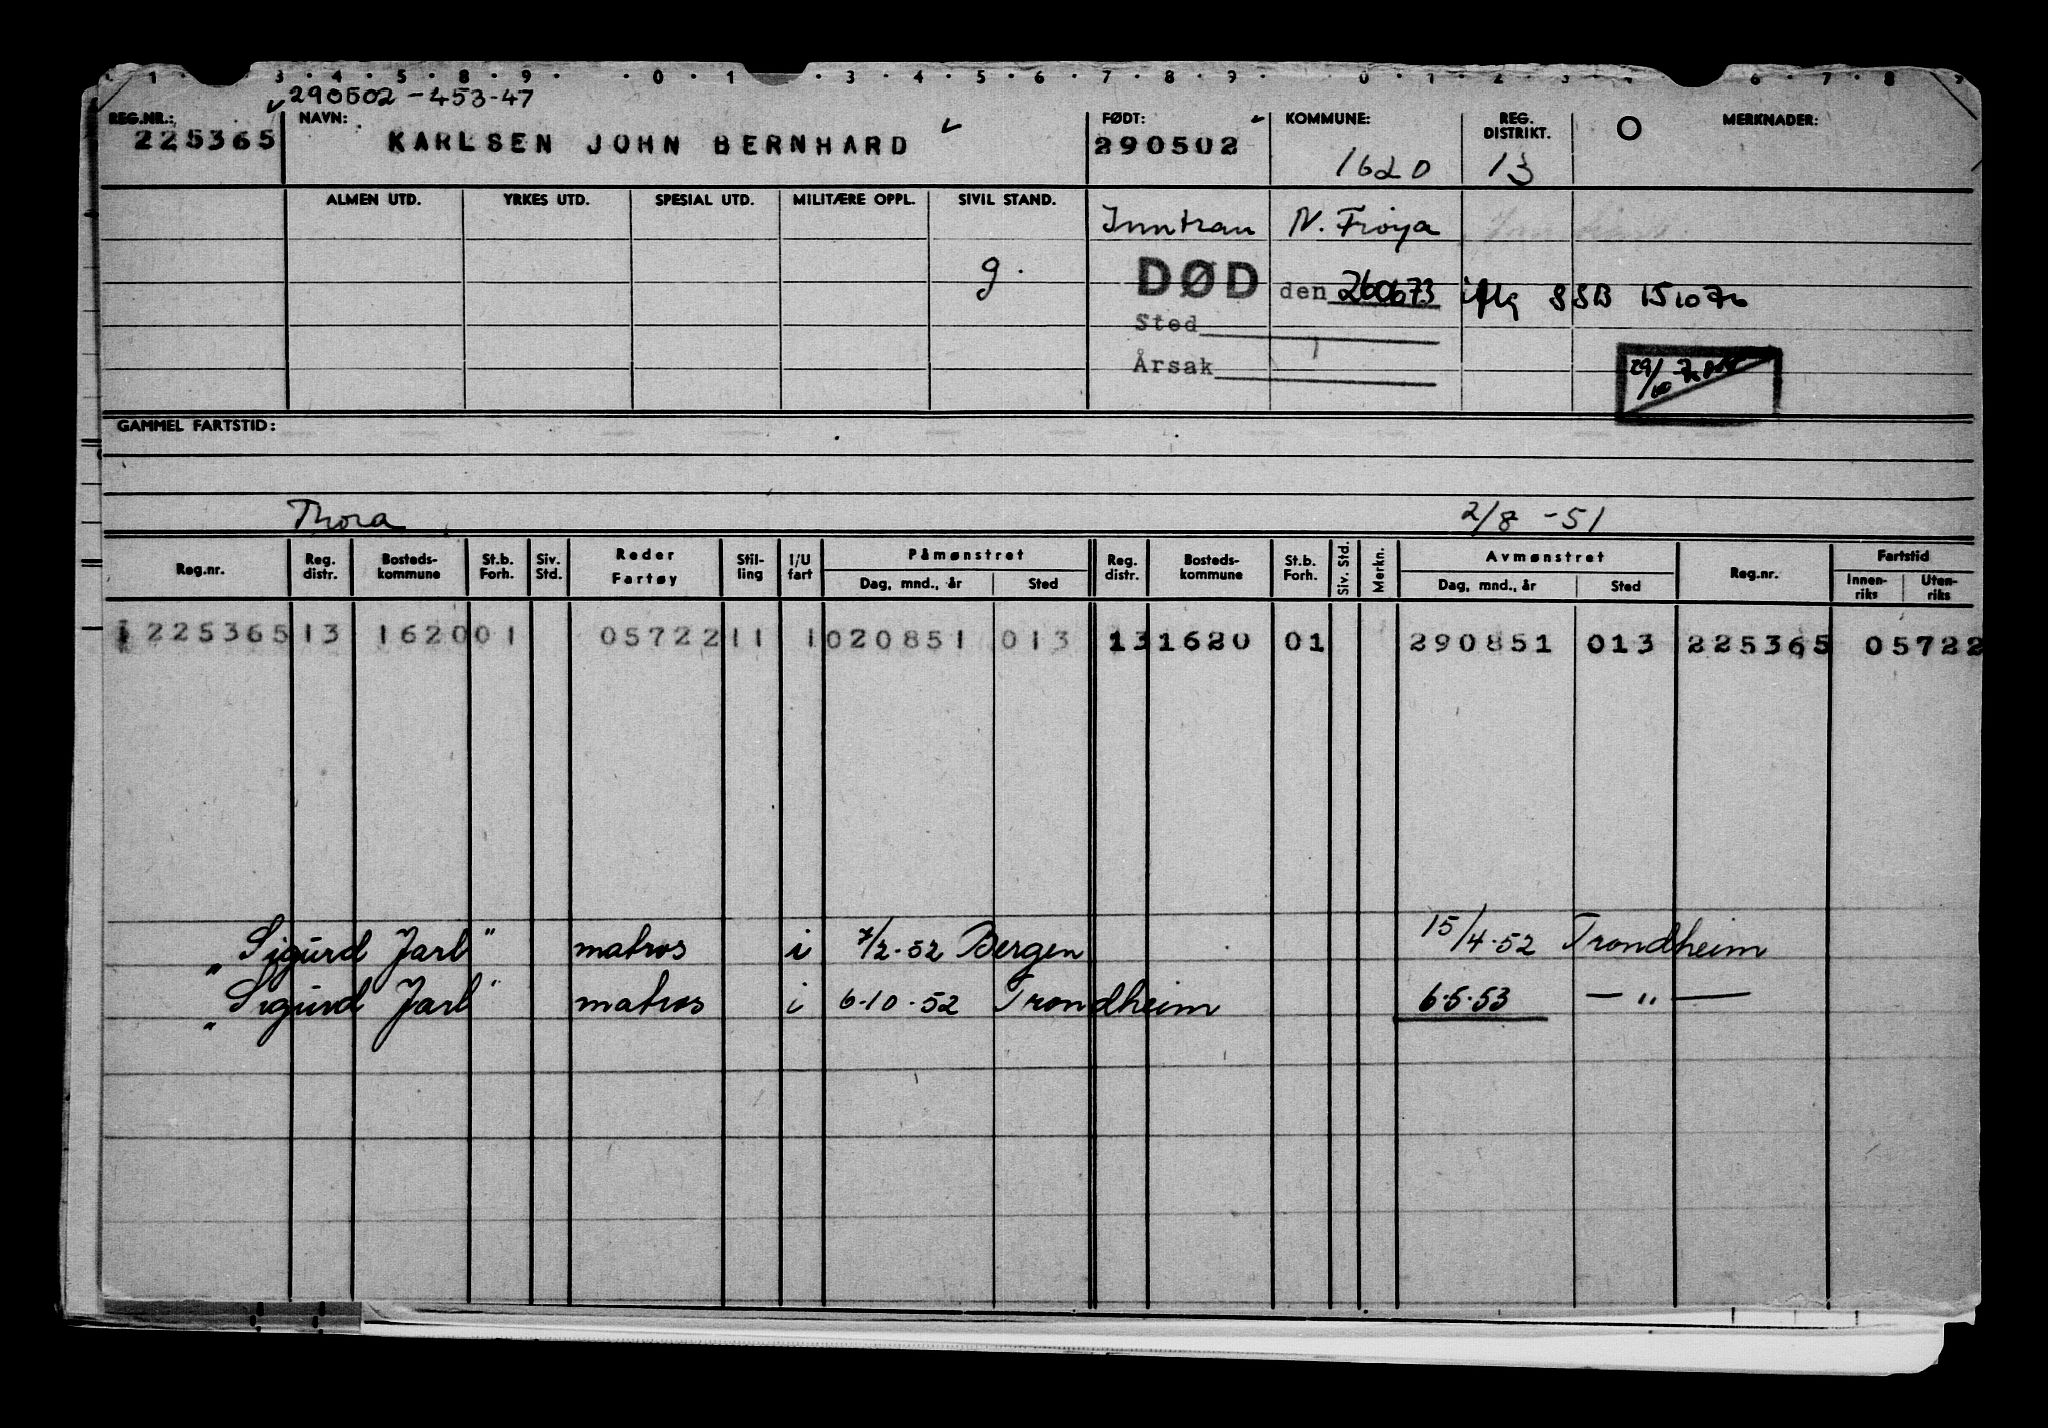 1 3 4 5 8 9 0 1 3 4 5 6 7 8 9 0 1 2 3 6 7 8 9
290502-453-47
REG.NR.: NAVN: FØDT: KOMMUNE: REG. DISTRIKT. O MERKNADER:
225365 KARLSEN JOHN BERNHARD 290502 1620 13
ALMEN UTD. YRKES UTD. SPESIAL UTD. MILITÆRE OPPL. SIVIL STAND.
Inntran N. Frøya
g.
DØD den 260673 iflg SSB
Sted
Årsak
29/10
GAMMEL FARTSTID:
Thora 2/8 -51
Reg.nr. Reg. distr. Bosteds-kommune St.b. Forh. Siv. Std. Reder Fartøy Stil-ling I/U fart Påmønstret Dag, mnd., år Sted Reg. distr. Bosteds-kommune St.b. Forh. Siv. Std. Merkn. Avmønstret Dag, mnd., år Sted Reg.nr. Fartstid Innen-riks Uten-riks
225365 13 1620 01 05722 11 1 020851 013 13 1620 01 290851 013 225365 05722
„Sigurd Jarl" matros i 7/2-52 Bergen 15/4-52 Trondheim
„Sigurd Jarl" matros i 6-10-52 Trondheim 6-5-53 — „ —